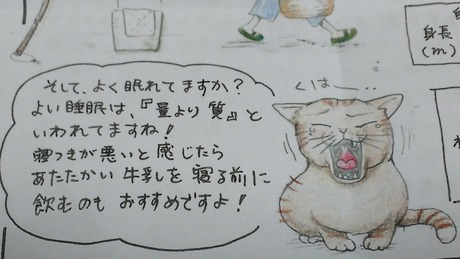 そして、よく眠れてますか？
よい睡眠は、『量より質』と
いわれてますね！
寝つきが悪いと感じたら
あたたかい牛乳を寝る前に
飲むのもおすすめですよ！
くはー‥
身長
(m)